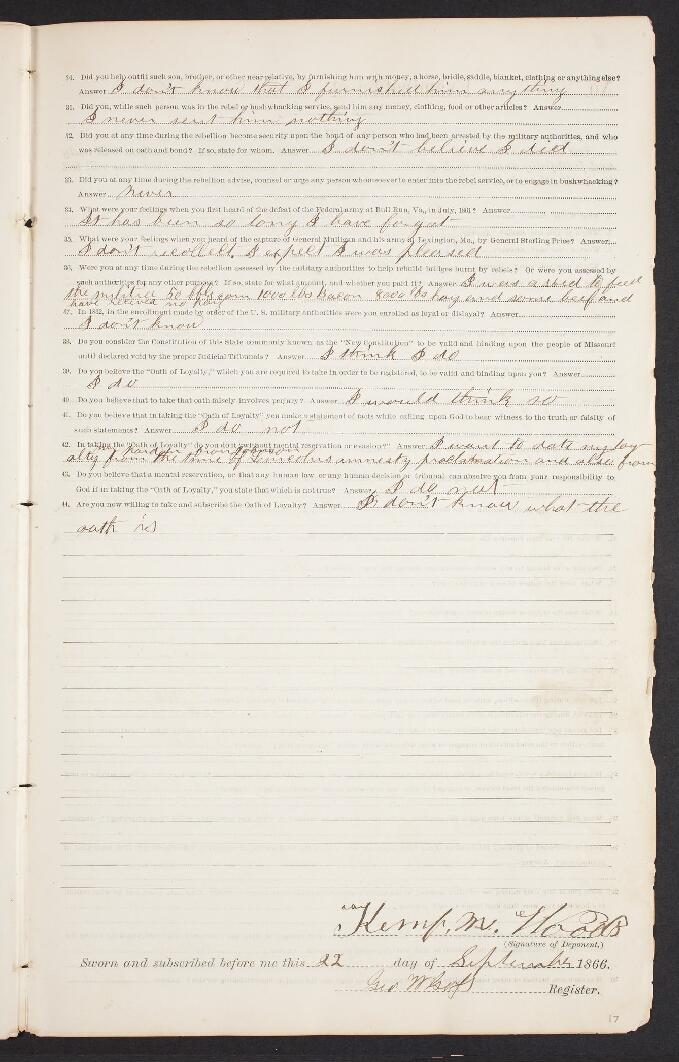 30. Did you help outfit such son, brother, or other near relative, by furnishing him with money, a horse, bridle, saddle, blanket, clothing or anything else?
Answer I don't know that I furnished him anything
31. Did you, while such person was in the rebel or bushwhacking service, send him any money, clothing, food or other articles? Answer
I never sent him nothing
32. Did you at any time during the rebellion become security upon the bond of any person who had been arrested by the military authorities, and who
was released on oath and bond? If so, state for whom. Answer I don't believe I did
33. Did you at any time during the rebellion advise, counsel or urge any person whomsoever to enter into the rebel service, or to engage in bushwhacking?
Answer Never
34. What were your feelings when you first heard of the defeat of the Federal army at Bull Run, Va., in July, 1861? Answer
It has been so long I have forgot
35. What were your feelings when you heard of the capture of General Mulligan and his army at Lexington, Mo., by General Sterling Price? Answer
I don't recollect. I expect I was pleased
36. Were you at any time during the rebellion assessed by the military authorities to help rebuild bridges burnt by rebels? Or were you assessed by
such authorities for any other purpose? If so, state for what amount, and whether you paid it? Answer I was to feed
the militia 50 bbls corn 1000 lbs bacon 8000 lbs hay and some beef and
have received no pay
37. In 1862, in the enrollment made by order of the U. S. military authorities were you enrolled as loyal or disloyal? Answer
I don't know
38. Do you consider the Constitution of this State commonly known as the "New Constitution" to be valid and binding upon the people of Missouri
until declared void by the proper Judicial Tribunals? Answer I think I do
39. Do you believe the "Oath of Loyalty," which you are required to take in order to be registered, to be valid and binding upon you? Answer
I do
40. Do you believe that to take that oath falsely involves perjury? Answer I would think so
41. Do you believe that in taking the "Oath of Loyalty" you make a statement of facts while calling upon God to bear witness to the truth or falsity of
such statements? Answer I do not
42. In taking the "Oath of Loyalty" do you do it without mental reservation or evasion? Answer I want to date my loy-
my pardon from Johnson
alty from the time of Lincolns amnesty proclamation and also from
43. Do you believe that a mental reservation, or that any human law or any human decision or tribunal can absolve you from your responsibility to
God if in taking the "Oath of Loyalty," you state that which is not true? Answer I do not
44. Are you now willing to take and subscribe the Oath of Loyalty? Answer I don't know what the
oath is
Kemp. M. Woods
(Signature of Deponent.)
Sworn and subscribed before me this 22 day of September 1866.
Geo Register.
17